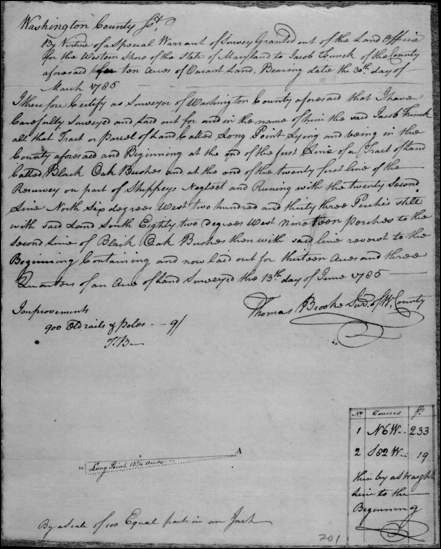 Washington County Sct
By Virtue of a Special Warrant of Survey Granted out of the Land Office
for the Western Shore of the State of Maryland to Jacob Funck of the County
aforesaid for ten Acres of Vacant Land, Bearing date the 30th day of
March 1785
I therefore Certify as Surveyor of Washington County aforesaid that I have
Carefully Surveyed and Laid out for and in the name of him the said Jacob Funck
all that Tract or parcel of Land Called Long Point Lying and being in the
County aforesaid and Beginning at the end of the first Line of a Tract of Land
Called Black Oak Bushes and at the end of the twenty first line of the
Resurvey on part of Shippeys Neglect and Running with the twenty Second
Line North Six degrees West two hundred and thirty three Perches still
with said Land South Eighty two degrees West nineteen perches to the
Second Line of Black Oak Bushes then with said line reverst to the
Beginning Containing and now laid out for thirteen Acres and three
Quarters of an Acre of Land Surveyed this 13th day of June 1785
Thomas Brooke Sur. of W. County
Improvements
900 Old rails & Poles -- 9/
T.B
Long Point 13 3/4 Acres
A
By a Scale of 100 Equal parts in an Inch
No Courses Ps
1 N6W.. 233
2 S82W.. 19
then by a Straight
Line to the
Beginning
201